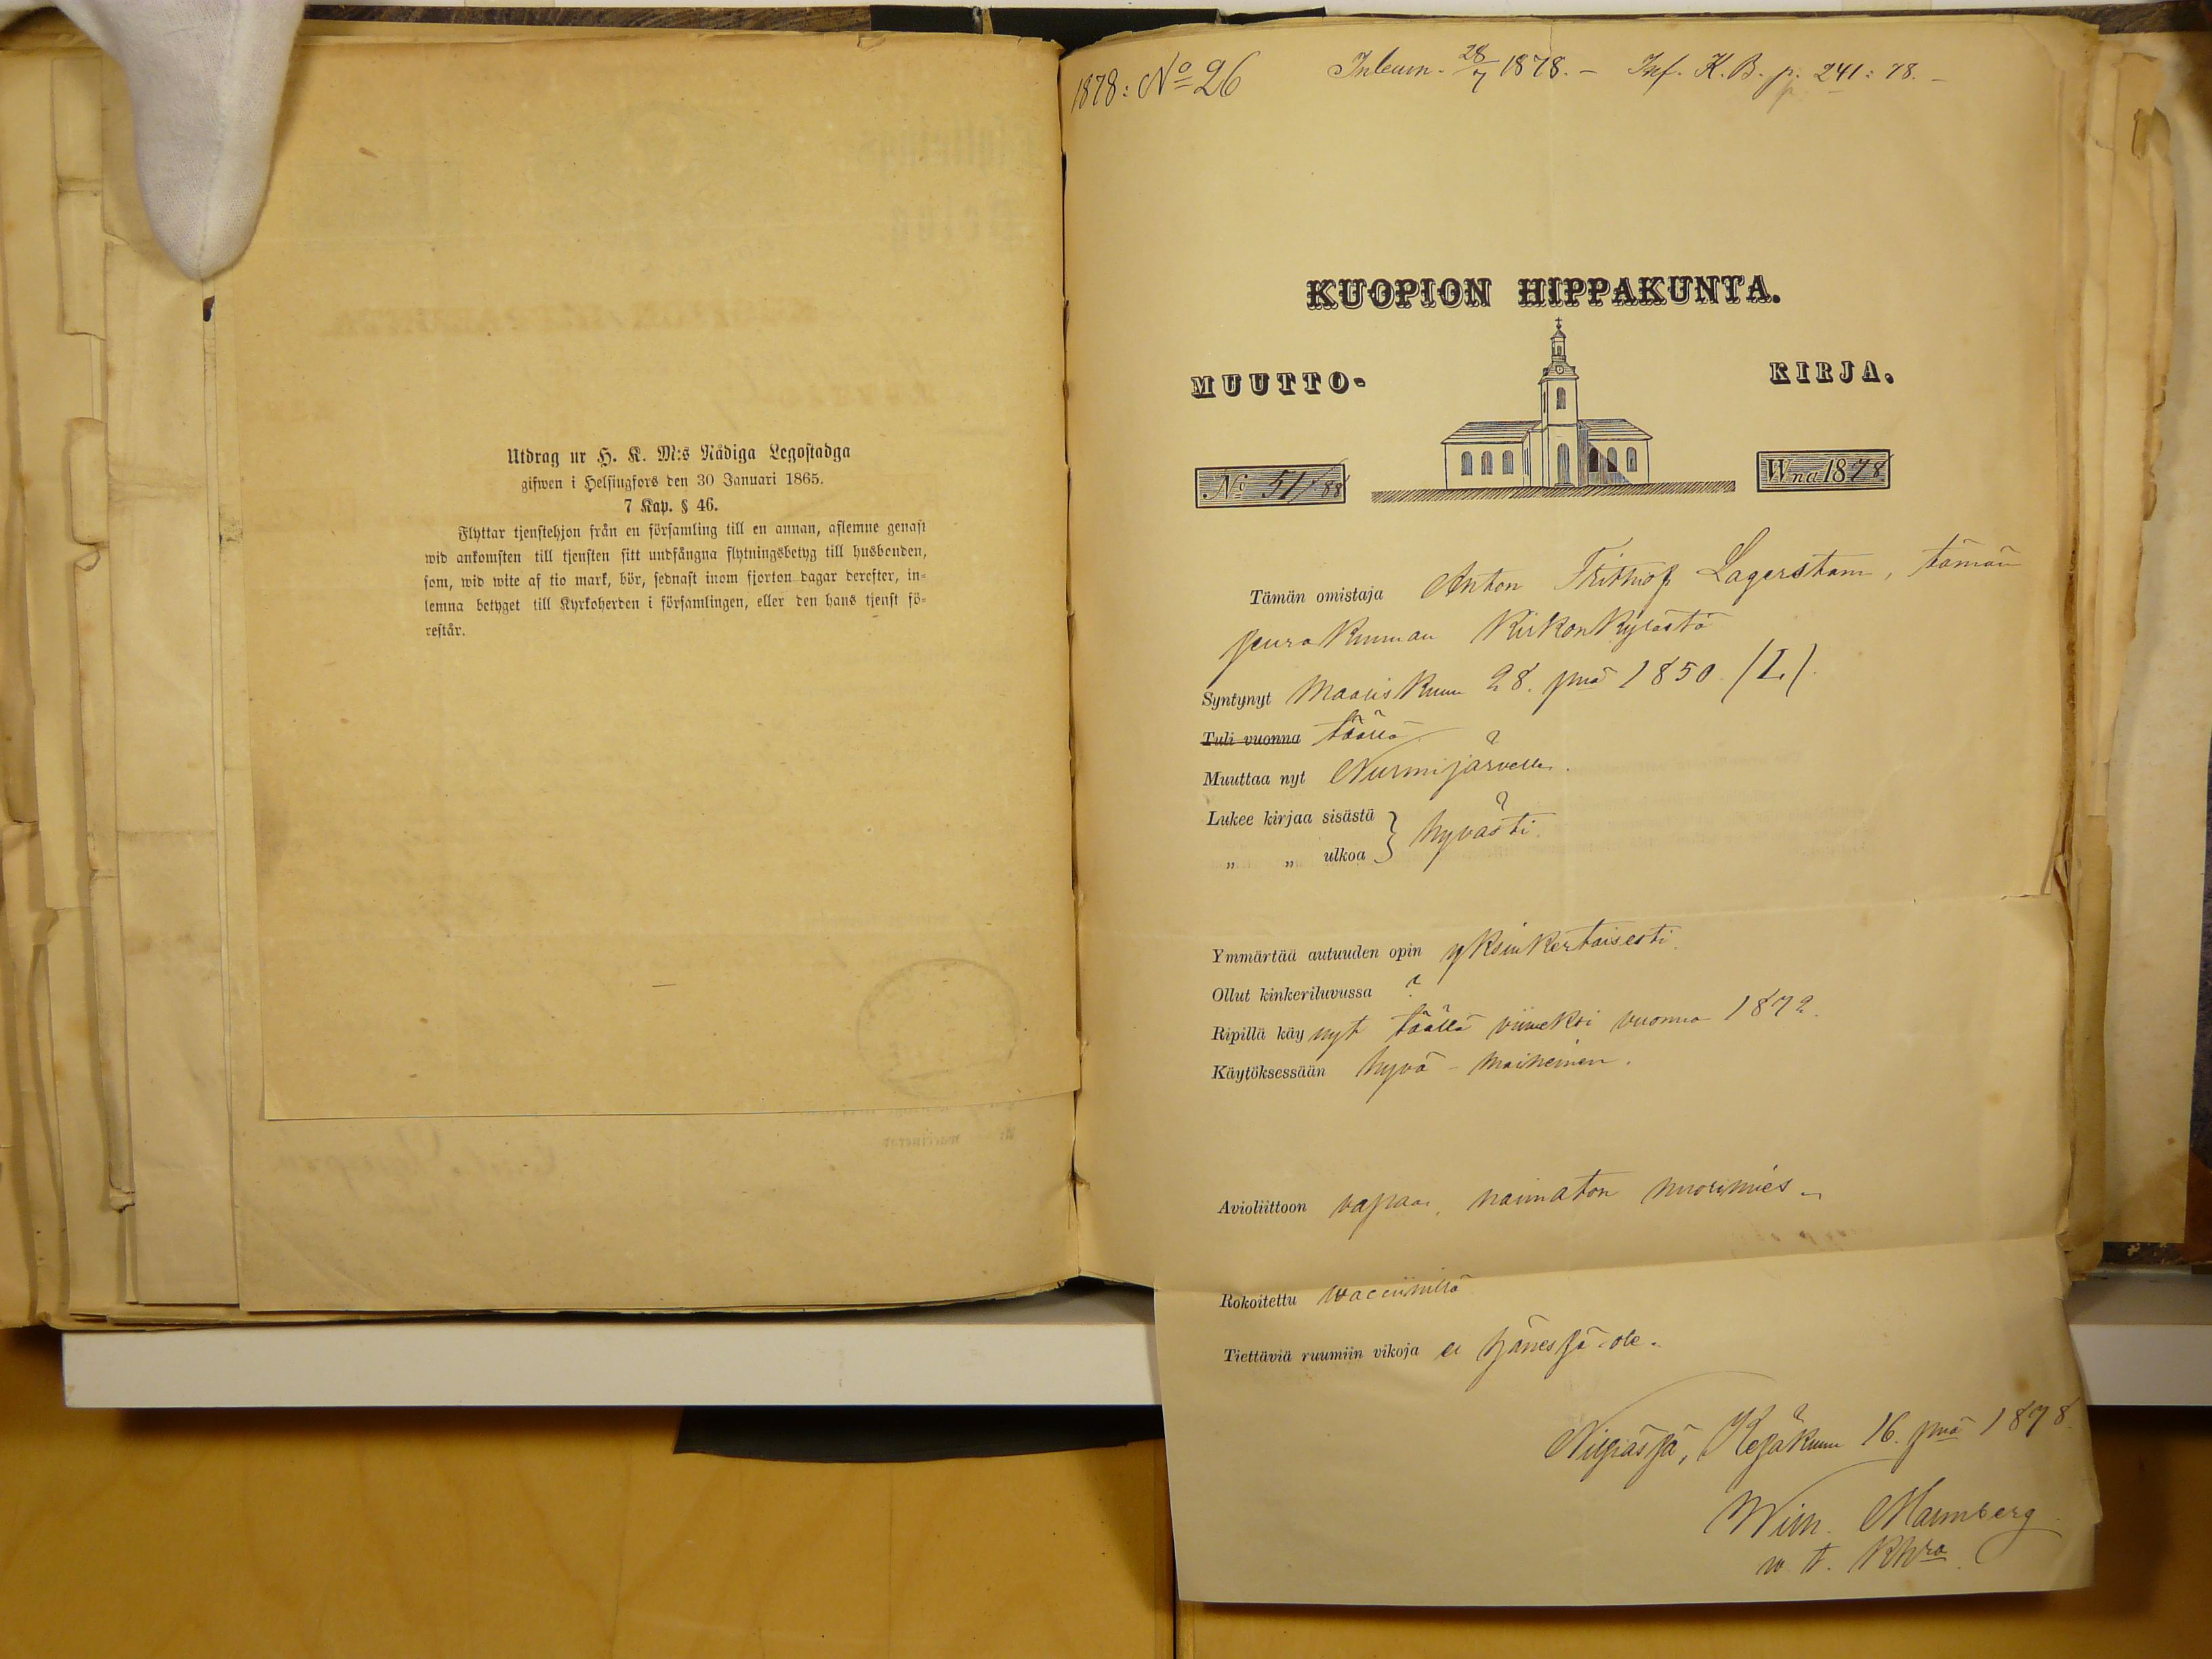 Utdrag ur H. K. M:s Nådiga Legostadga
gifwen i Helsingfors den 30 Januari 1865.
7 Kap. § 46.
Flyttar tjenstehjon från en församling till en annan, aflemne genast
wid ankomsten till tjensten sitt undfångna flytningsbetyg till husbonden,
som, wid wite af tio mark, bör, sednast inom fjorton dagar derefter, in-
lemna betyget till Kyrkoherden i församlingen, eller den hans tjenst fö-
restår.
1878: No 26
28/7 1878. – Inf. K. B. p. 241: 78. –
KUOPION HIPPAKUNTA.
MUUTTO- KIRJA.
No 51/88 Wna 1878
Tämän omistaja Anton Frithiof Lagerstam, tämän
seurakunnan Kirkonkylästä
Syntynyt Maaliskuun 28. pnä 1850. /L/.
Tuli vuonna täällä
Muuttaa nyt Nurmijärvelle.
Lukee kirjaa sisästä } hyvästi.
„ „ ulkoa
Ymmärtää autuuden opin yksinkertaisesti.
Ollut kinkeriluvussa ?
Ripillä käy nyt täällä viimeksi vuonna 1872.
Käytöksessään hyvä-maineinen.
Avioliittoon vapaa, naimaton nuorimies
Rokoitettu
Tiettäviä ruumiin vikoja ei hänessä ole.
Kesäkuun 16. pnä 1878.
Malmberg
v. t. Khra